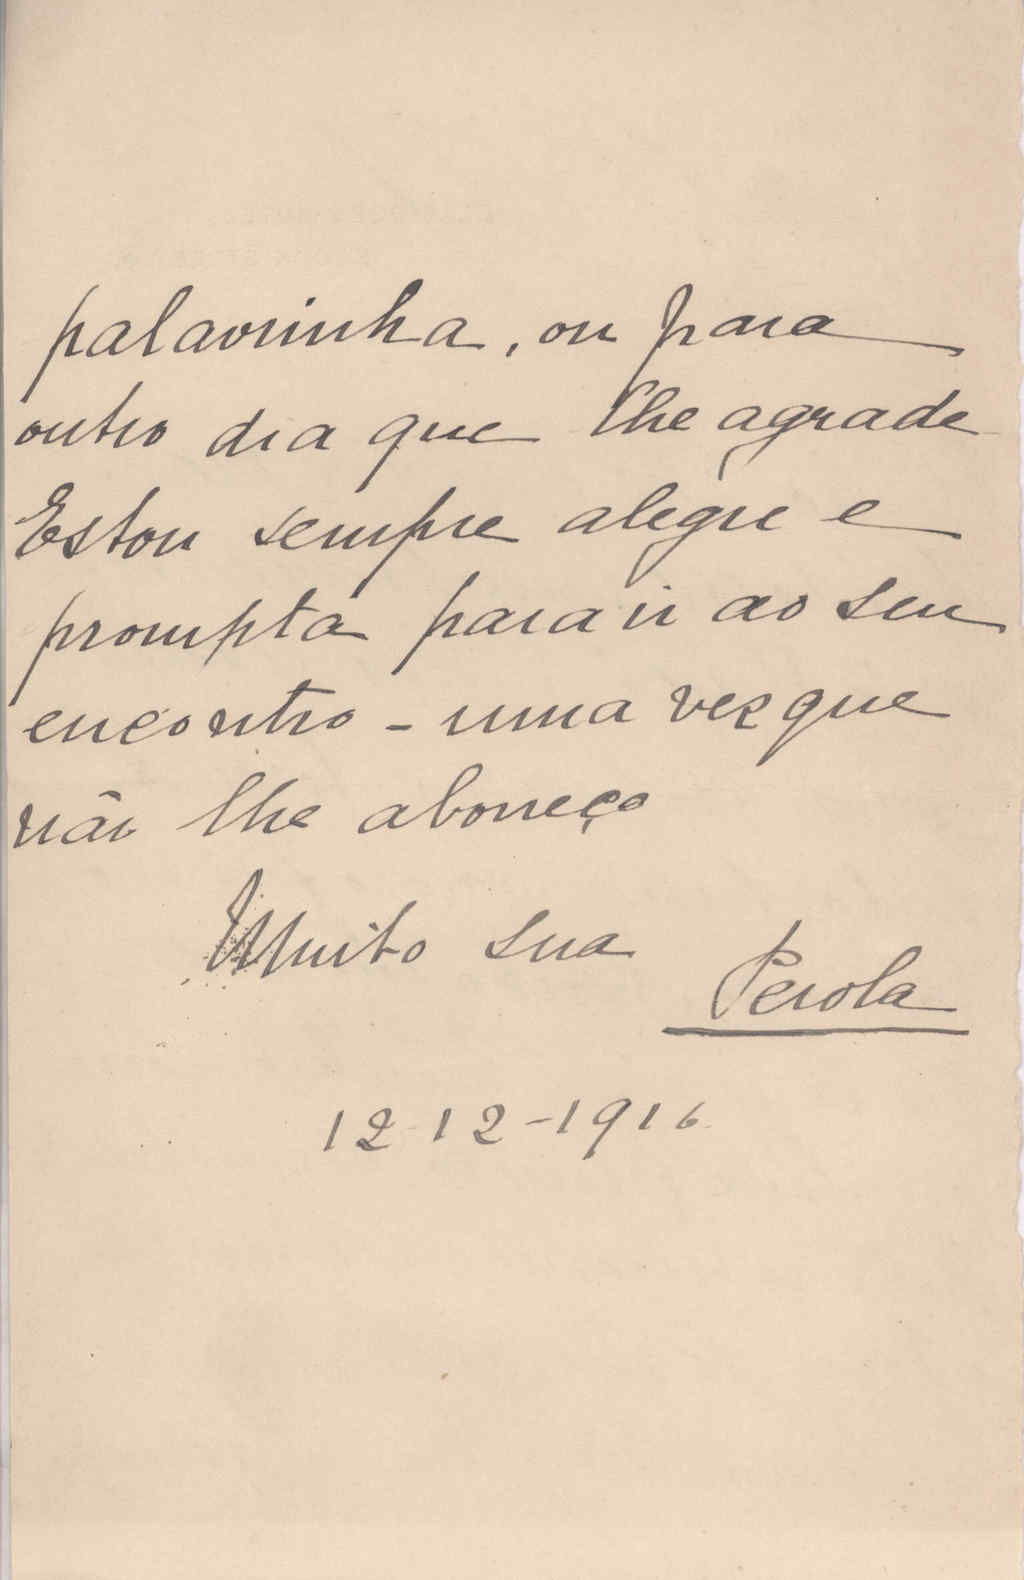 palavrinha, ou para
outro dia que lhe agrade
Estou sempre alegre e
prompta para ir ao seu
encontro - uma vez que
não lhe aborreço
Muito sua
Perola
12-12-1916